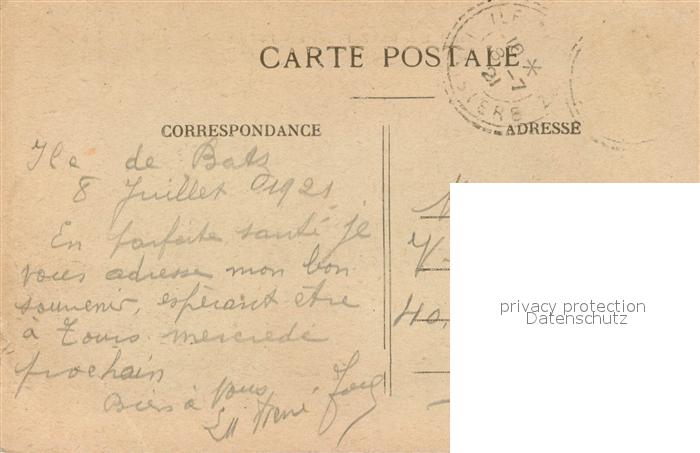 CARTE POSTALE
CORRESPONDANCE
Ile de Bats
8 Juillet 1921
En parfaite santé je
vous adresse mon bon
souvenir, espérant être
à Tours mercrede
prochain
Bien à vous
ADRESSE
40,
privacy protection
Datenschutz